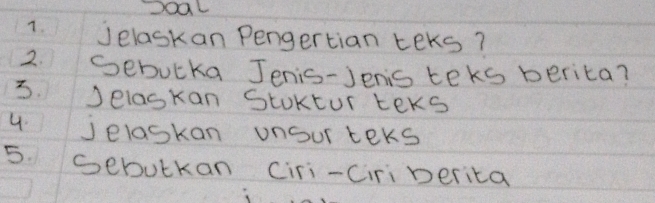 Soal
1. Jelaskan Pengertian teks?
2. Sebutka Jenis-Jenis teks berita?
3. Jelaskan Stuktur teks
4. Jelaskan unsur teks
5. Sebutkan Ciri-Ciri berita